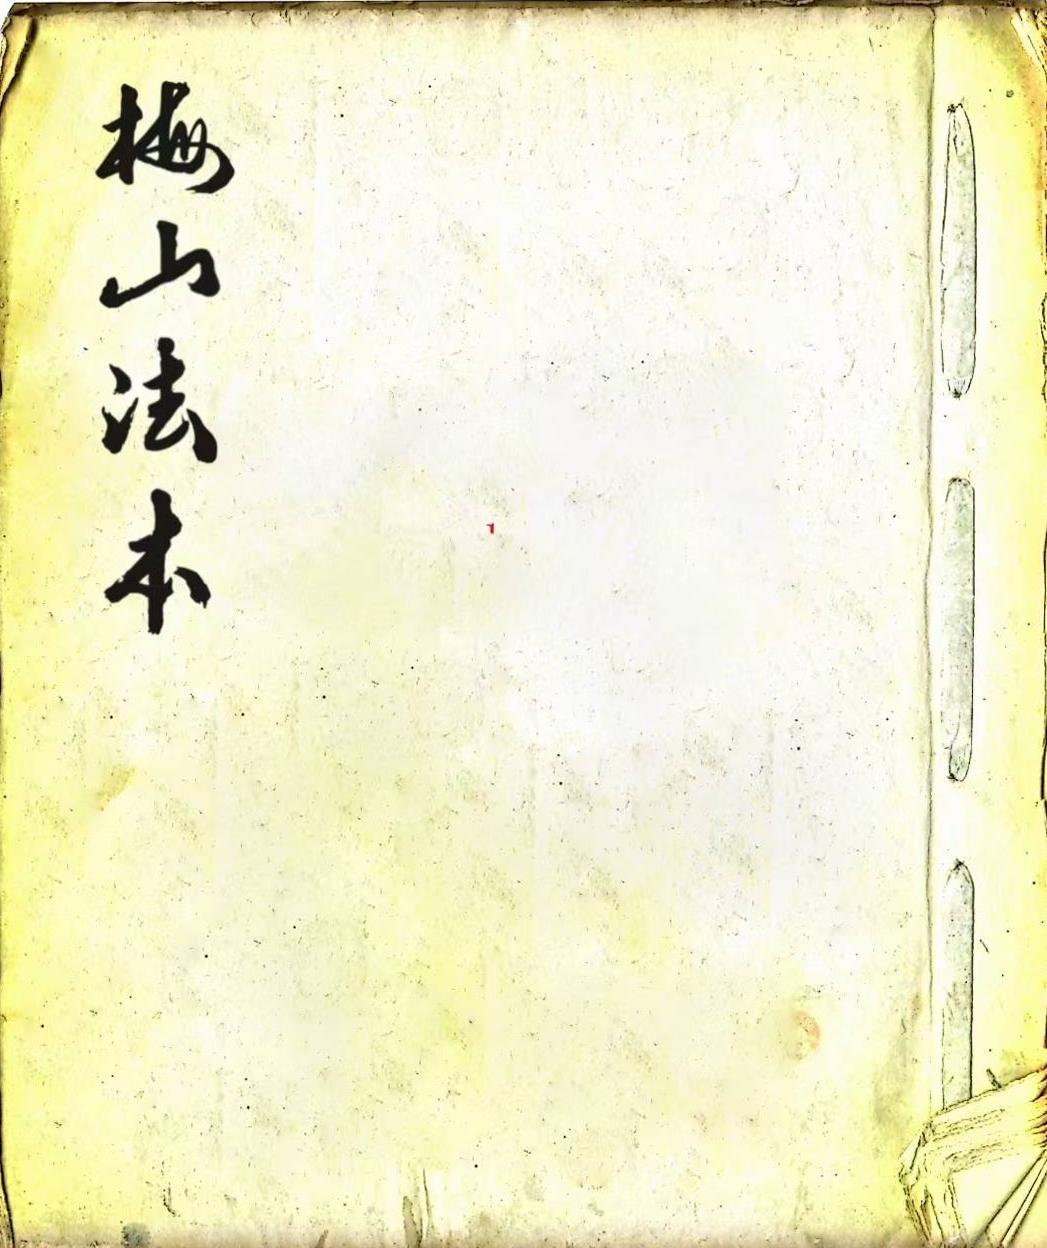 梅山法本